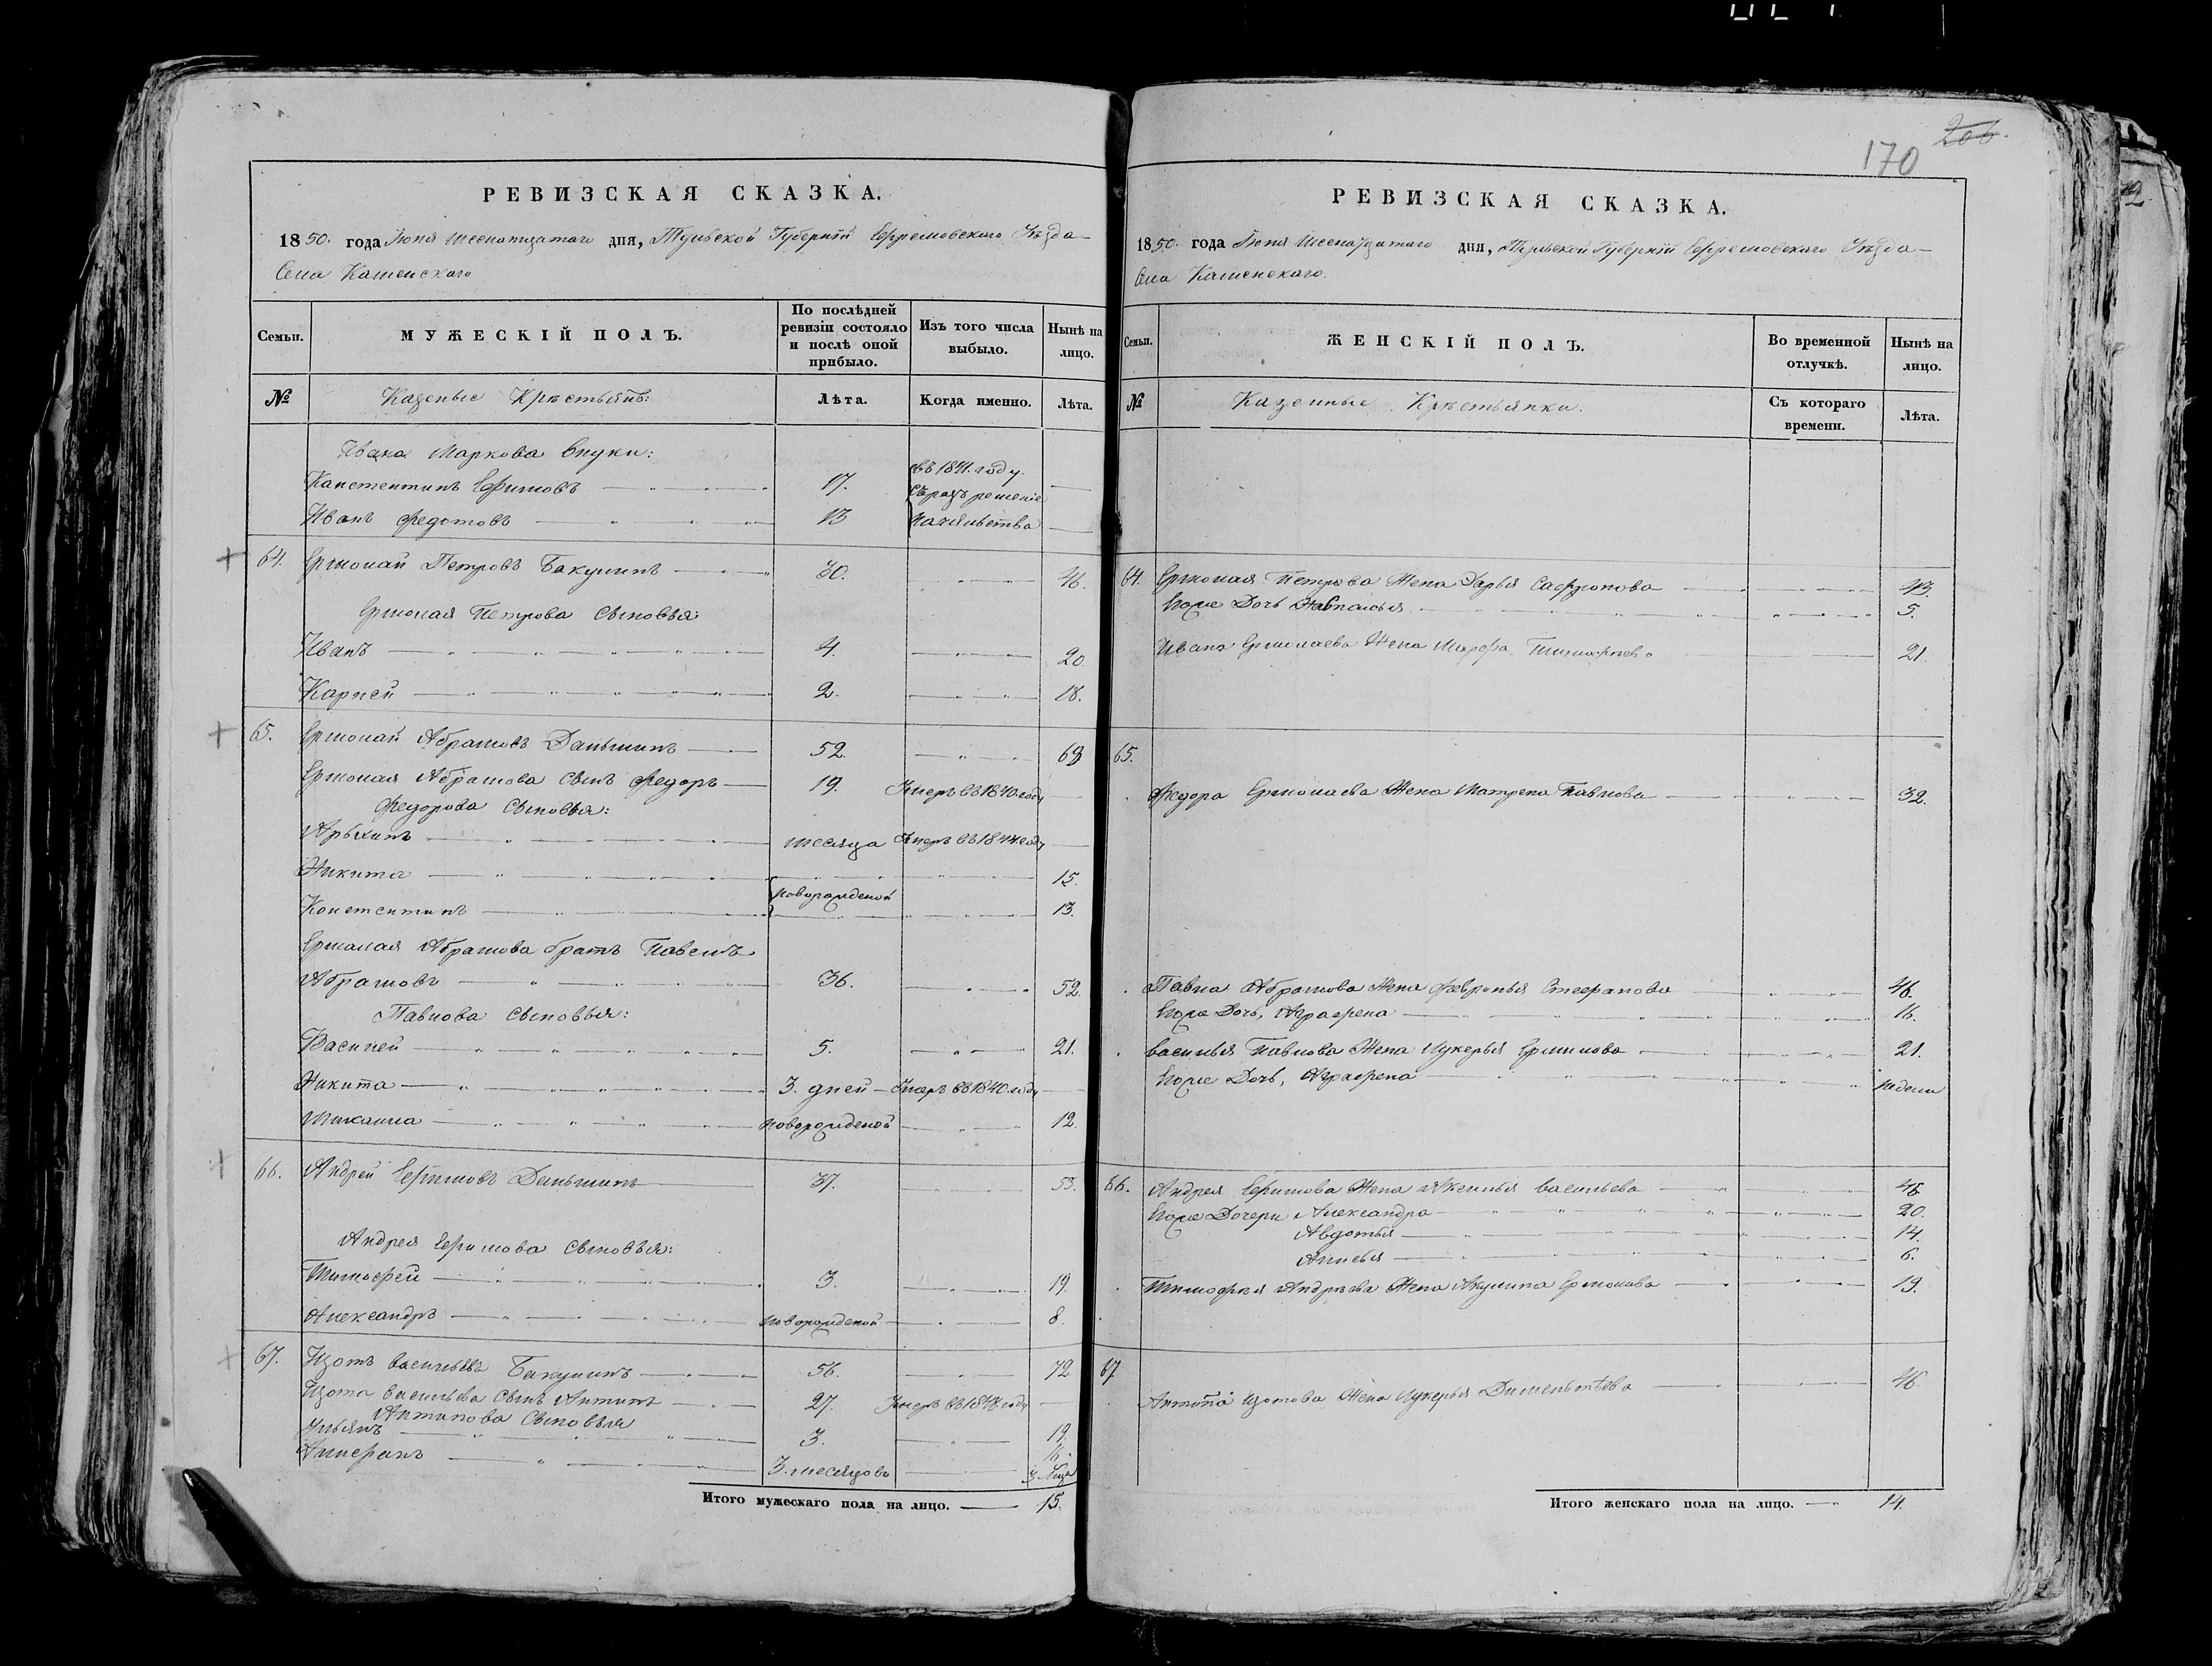 170
206.
РЕВИЗСКАЯ СКАЗКА.
1850. года Іюня шеснатцатаго дня, Тульской Губерніи Ефремовскаго Уѣзда
Села Каменскаго
Семьи.
МУЖЕСКІЙ ПОЛЪ.
По послѣдней ревизіи состояло и послѣ оной прибыло.
Изъ того числа выбыло.
Нынѣ на лицо.
№ Казеные Крестьянѣ: Лѣта. Когда именно. Лѣта.
Ивана Маркова внуки: въ 1841. году.
Канстентинъ Ефимовъ 17.
Иванъ Федотовъ 13
64. Ермолай Петровъ Бакулинъ 30. 46.
Ермолая Петрова Сыновья:
Иванъ 4. 20.
Карпей 2. 18.
65. Ермолай Абрамовъ Даньшинъ 52. 69
Ермолая Абрамова сынъ Федоръ 19. Умеръ въ 1840 году
Федорова Сыновья:
месяца Умеръ въ 1844 году
Никита 15.
новорожденой
Констентинъ 13.
Ермолая Абрамова братъ Павелъ
Абрамовъ 36. 52.
Павлова Сыновья:
Василей 5. 21.
Никита 3. дней Умеръ въ 1840 году
Микаила новорожденой 12.
66. Андрей Ефимовъ Даньшинъ 37. 53.
Андрея Ефимова Сыновья:
Тимофей 3. 19.
Александръ новорожденой 8.
67. Изотъ Васильевъ Бакулинъ 56. 72
Изота Васильева Сынъ Антипъ 27. Умеръ въ году
Антипова Сыновья
Ульянъ 3. 19.
3. месяцовъ 16.
Итого мужескаго пола на лицо. 15.
РЕВИЗСКАЯ СКАЗКА.
1850. года Іюня Шеснатцатаго дня, Тульской Губерніи Ефремовскаго Уѣзда
Села Каменскаго.
Семьи.
ЖЕНСКІЙ ПОЛЪ.
Во временной отлучкѣ.
Нынѣ на лицо.
№ Казенные Крестьянки. Съ котораго времени. Лѣта.
64. Ермолая Петрова Жена Дарья Сафронова 43.
Ихже Дочь 5.
Ивана Ермолаева Жена Марфа Тимофеева 21.
65.
Федора Ермолаева Жена Матрена Павлова 32.
Павла Абрамова Жена Февронья Стефанова 46.
Ихже Дочь, Аграфена 16.
Василья Павлова Жена Лукерья 21.
Ихже Дочь, Аграфена недели
66. Андрея Ефимова Жена Аксинья Васильева 46.
Ихже Дочери Александра 20.
Авдотья 14.
6.
Тимофея Андреева Жена Акулина Ермолова 19.
67
Антипа Изотова Жена Лукерья 46.
Итого женскаго пола на лицо. 14.